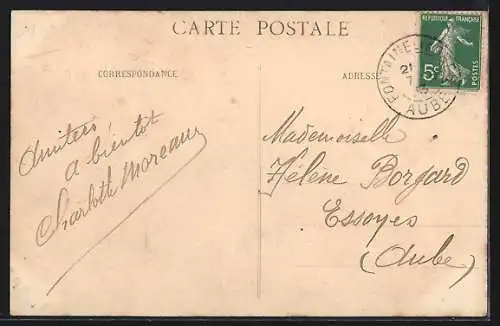 CARTE POSTALE
RÉPUBLIQUE FRANÇAISE
5c
POSTES
FONTAINE
21
AUBE
CORRESPONDANCE
ADRESSE
Amitiés,
a bientot
Charlotte Moreau
Mademoiselle
Hélène Borgard
Essoyes
(Aube)